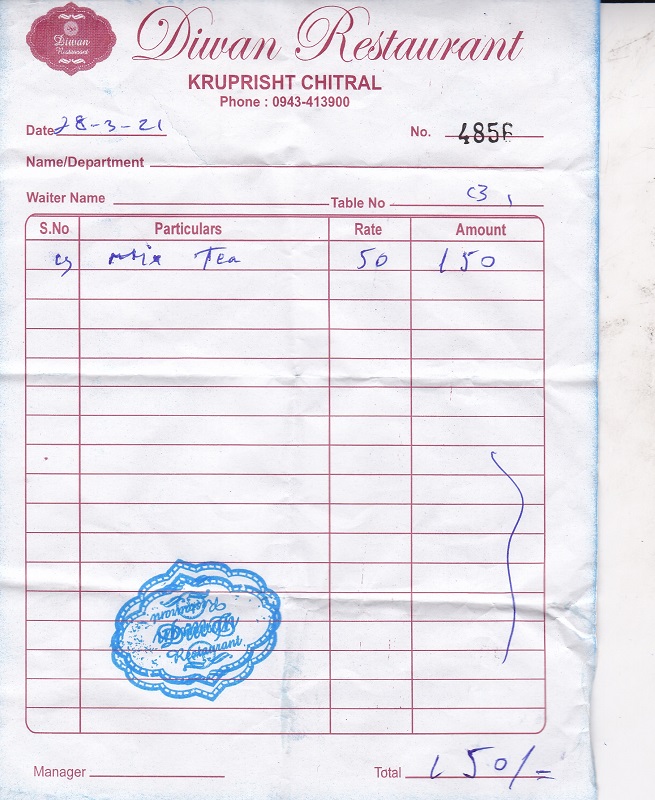 Diwan
Restaurant
Diwan Restaurant
KRUPRISHT CHITRAL
Phone : 0943-413900
Date 28-3-21 No. 4856
Name/Department
Waiter Name Table No 03
S.No Particulars Rate Amount
03 Mix Tea 50 150
Restaurant
Restaurant
Manager Total 150/=